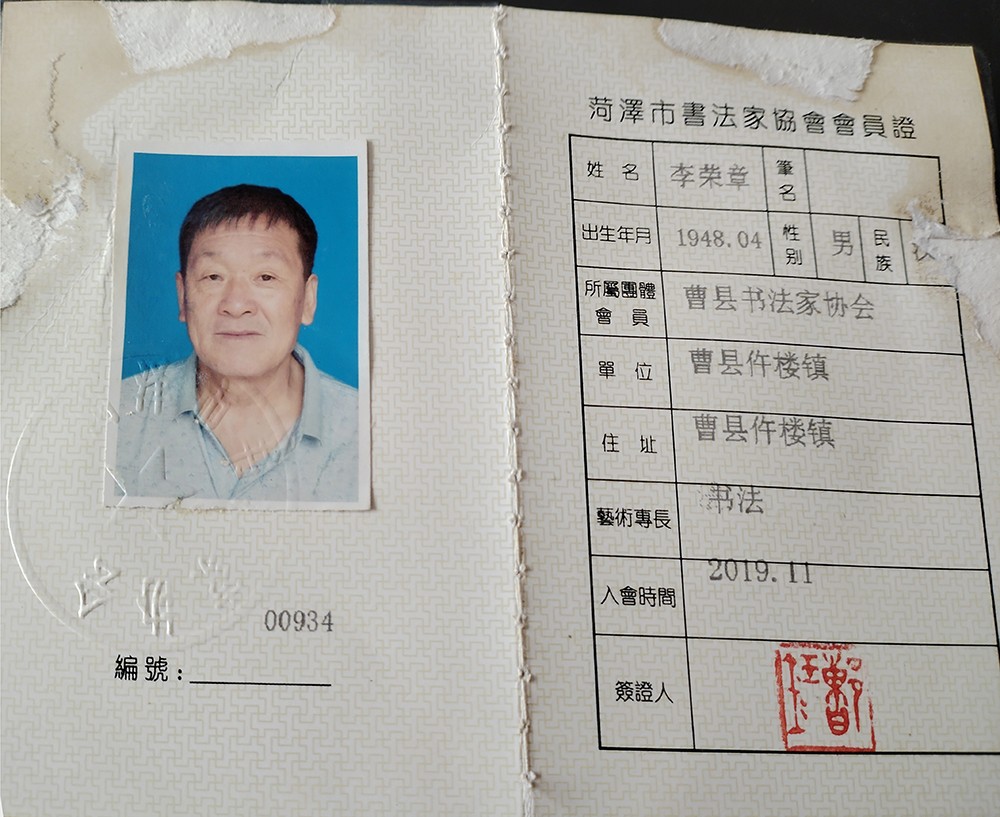 00934
編號:
菏澤市書法家協會會員證
姓名 李荣章 筆名
出生年月 1948.04 性别 男 民族
所屬團體會員 曹县书法家协会
單位 曹县仵楼镇
住址 曹县仵楼镇
藝術專長 书法
入會時間 2019.11
簽證人